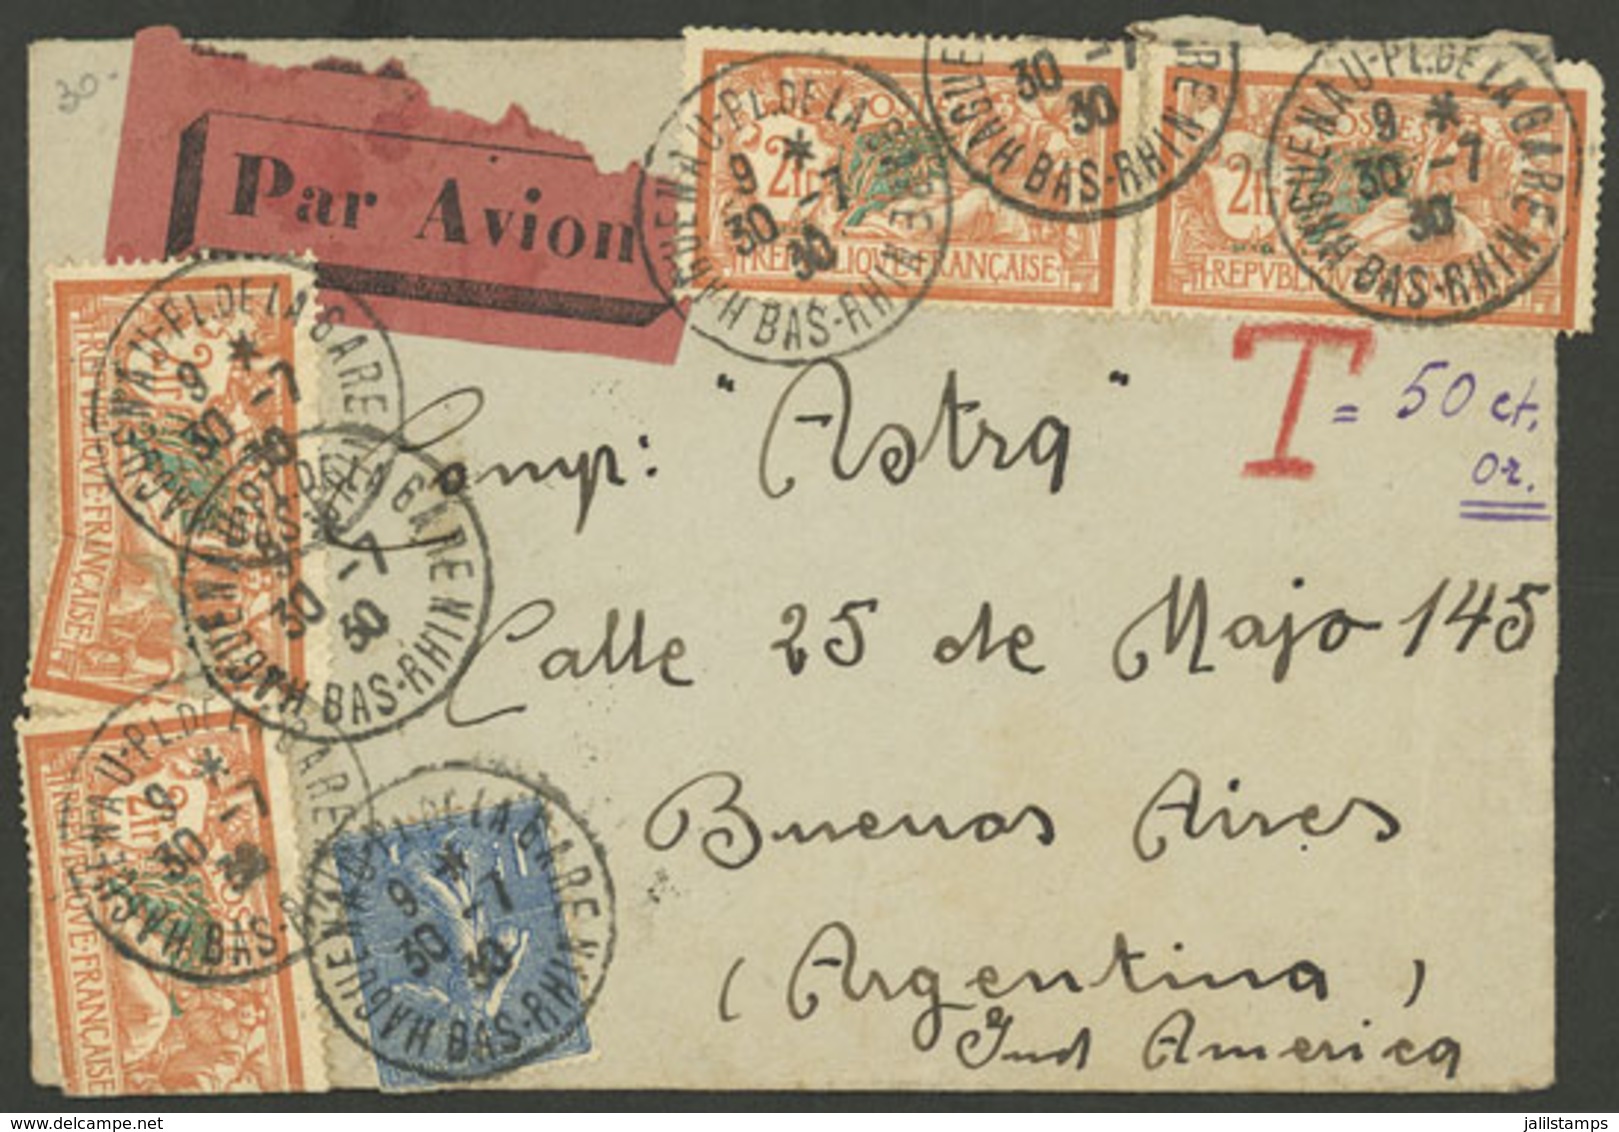 30-
Par Avion
HAGUENAU-PL.DE LA GARE
9 *
30 -7
30
BAS-RHIN
2fr
POSTES
REPVBLIQVE·FRANÇAISE
30 -7
30
HAGUE
BAS-RHIN
2fr
HAGUENAU-PL.DE LA GARE
9 *
30 -7
30
BAS-RHIN
T = 50 ct.
or.
Comp: "Astra"
Calle 25 de Majo 145
Buenos Aires
(Argentina)
Sud America
HAGUENAU-PL.DE LA GARE
9 *
30 -7
30
REPVBLIQVE·FRANÇAISE
HAGUENAU-PL.DE LA GARE
30 -7
30
BAS-RHIN
HAGUENAU-PL.DE LA GARE
9 *
30 -7
BAS-RHIN
2fr
REPVBLIQVE·FRANÇAISE
HAGUENAU-PL.DE LA GARE
9 *
30 -7
30
BAS-RHIN
jalilstamps